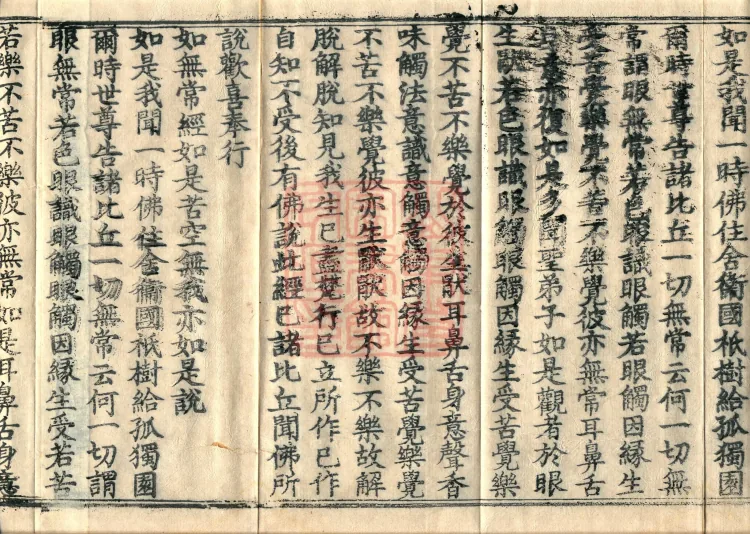 如是我聞一時佛住舍衛國祇樹給孤獨園
爾時世尊告諸比丘一切無常云何一切無
常謂眼無常若色眼識眼觸若眼觸因緣生
受苦覺樂覺不苦不樂覺彼亦無常耳鼻舌
身意亦復如是多聞聖弟子如是觀者於眼
生猒若色眼識眼觸眼觸因緣生受苦覺樂
覺不苦不樂覺於彼生猒耳鼻舌身意聲香
味觸法意識意觸意觸因緣生受苦覺樂覺
不苦不樂覺彼亦生猒猒故不樂不樂故解
脫解脫知見我生已盡梵行已立所作已作
自知不受後有佛說此經已諸比丘聞佛所
說歡喜奉行
如無常經如是苦空無我亦如是說
如是我聞一時佛住舍衛國祇樹給孤獨園
爾時世尊告諸比丘一切無常云何一切謂
眼無常若色眼識眼觸眼觸因緣生受若苦
若樂不苦不樂彼亦無常如是耳鼻舌身意